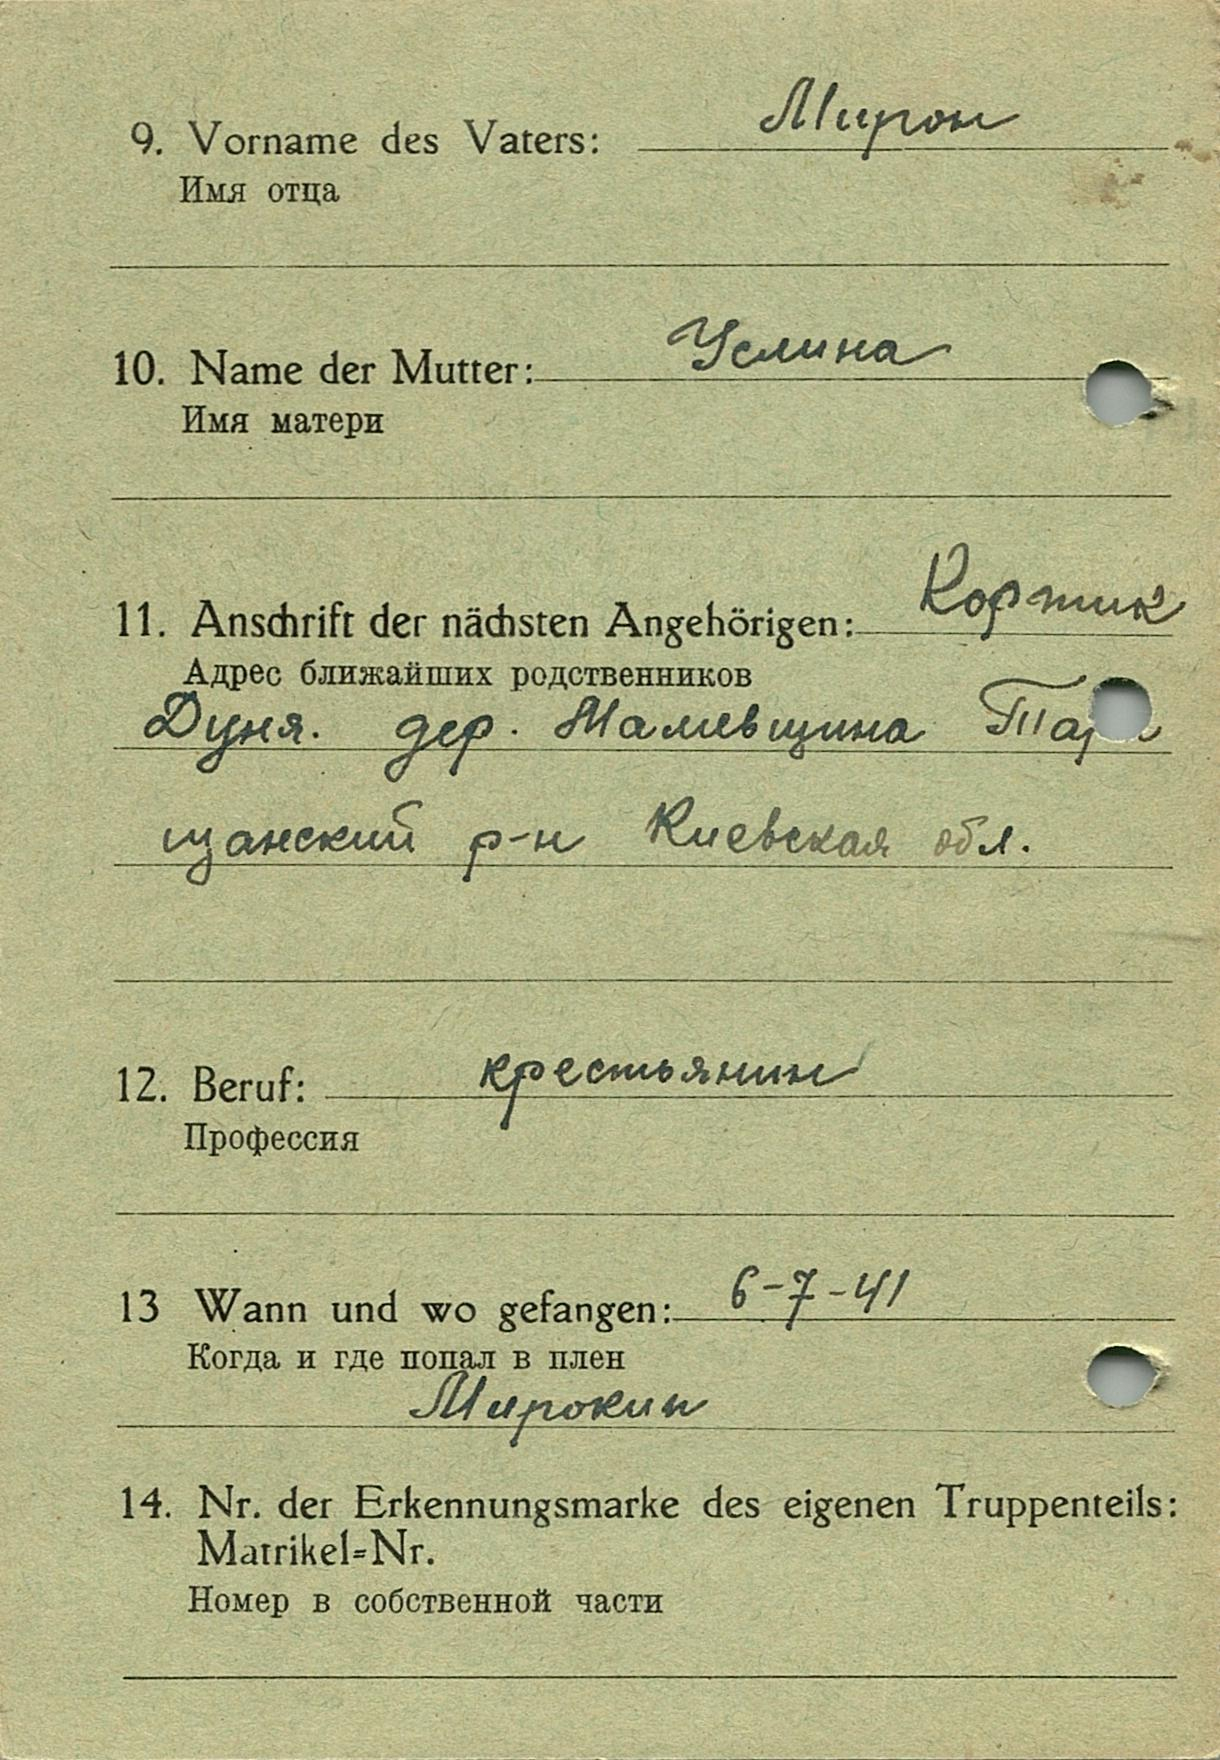 9. Vorname des Vaters: Мирон
Имя отца
10. Name der Mutter: Услина
Имя матери
11. Anschrift der nächsten Angehörigen: Коржик
Адрес ближайших родственников
Дуня. дер.
щанский р-н Киевская обл.
12. Beruf: крестьянин
Профессия
13 Wann und wo gefangen: 6-7-41
Когда и где попал в плен
14. Nr. der Erkennungsmarke des eigenen Truppenteils:
Matrikel=Nr.
Номер в собственной части